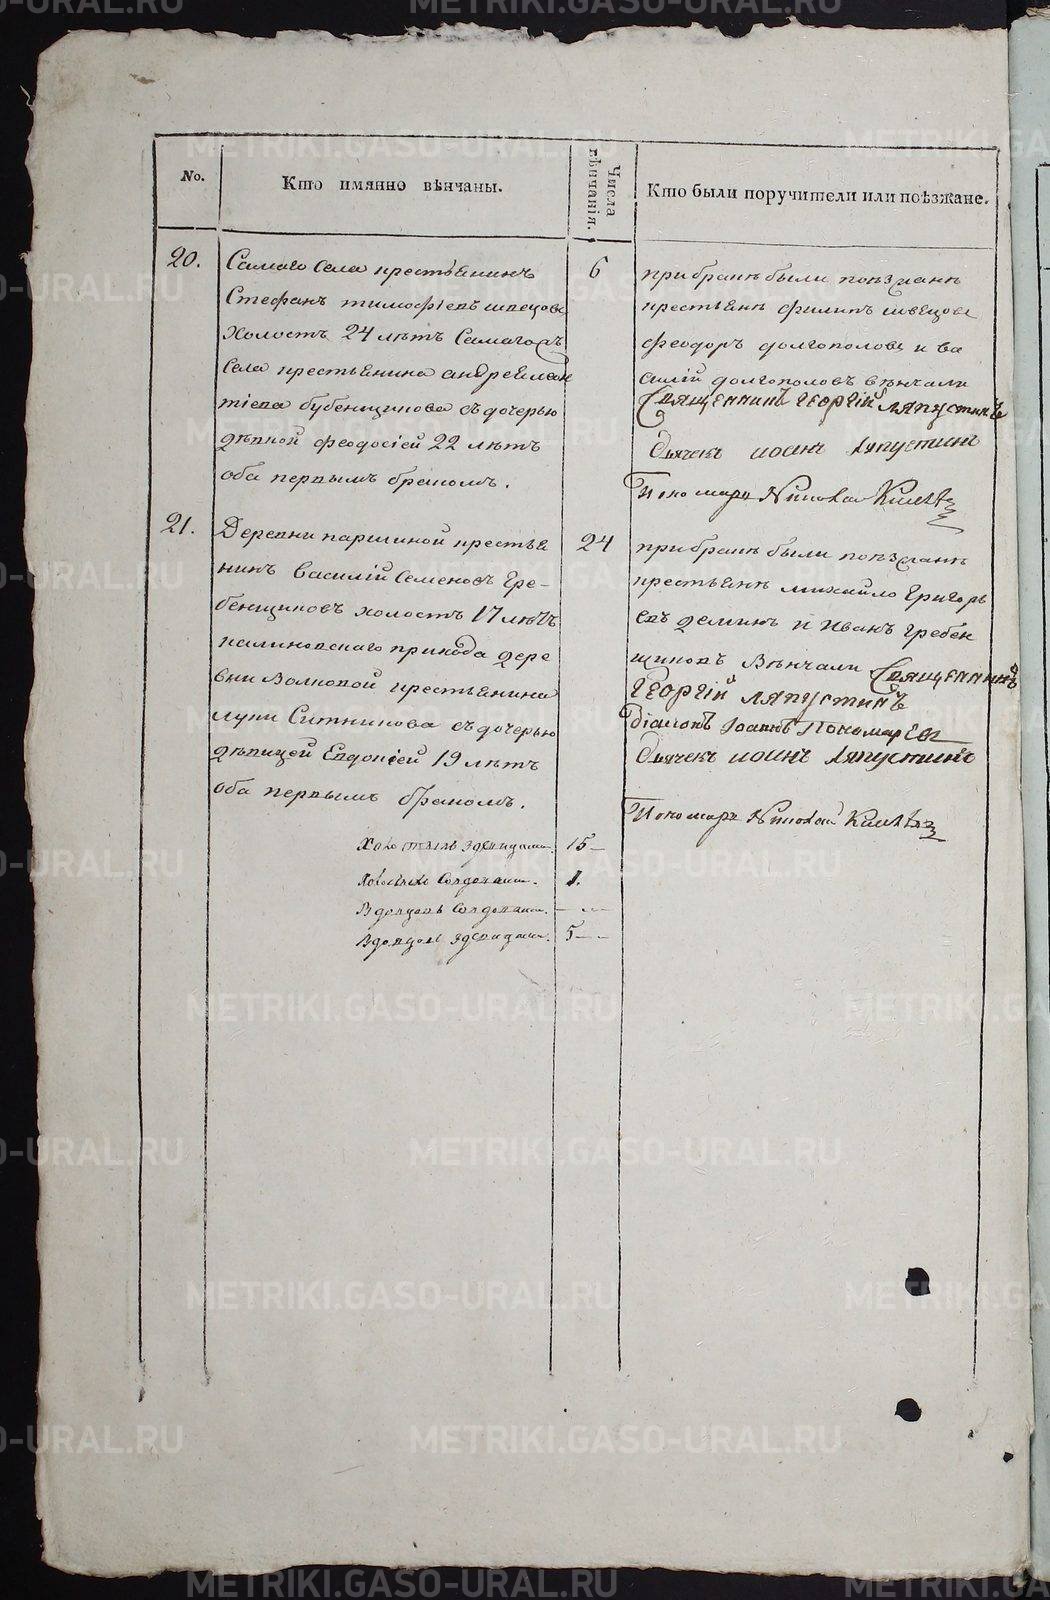 No.
Кто имянно вѣнчаны.
Числа вѣнчанія.
Кто были поручители или поѣзжане.
20.
Самаго села крестьянинъ
Стефанъ тимофіевъ швецовъ
холостъ 24 лѣтъ Самагожъ
села крестьянина андрея леон
тіева бубенщикова съ дочерью
дѣвкой феодосіей 22 лѣтъ
оба первымъ бракомъ.
6
при бракѣ были поѣзжанѣ
крестьянѣ филипъ швецовъ
феодоръ долгополовъ и ва
силій долгополовъ вѣнчали
Священникъ Георгій Ляпустинъ
Дьячекъ иоанъ Ляпустинъ
Пономарь Николай
21.
Деревни паршиной крестья
нинъ Василій Семеновъ Гре-
бенщиковъ холостъ 17 лѣтъ
калиновскаго прихода дере
вни Волковой крестьянина
луки Ситникова съ дочерью
дѣвицей Евдокіей 19 лѣтъ
оба первымъ бракомъ.
24
при бракѣ были поѣзжанѣ
крестьянѣ михайло Григорь
евъ деминъ и Иванъ Гребен
щиковъ Вѣнчали Священникъ
Георгій Ляпустинъ
Діаконъ Іоаннъ Пономаревъ
Дьячекъ иоанъ Ляпустинъ
Пономарь Николай
15
1.
Вдовцовъ
5
METRIKI.GASO-URAL.RU